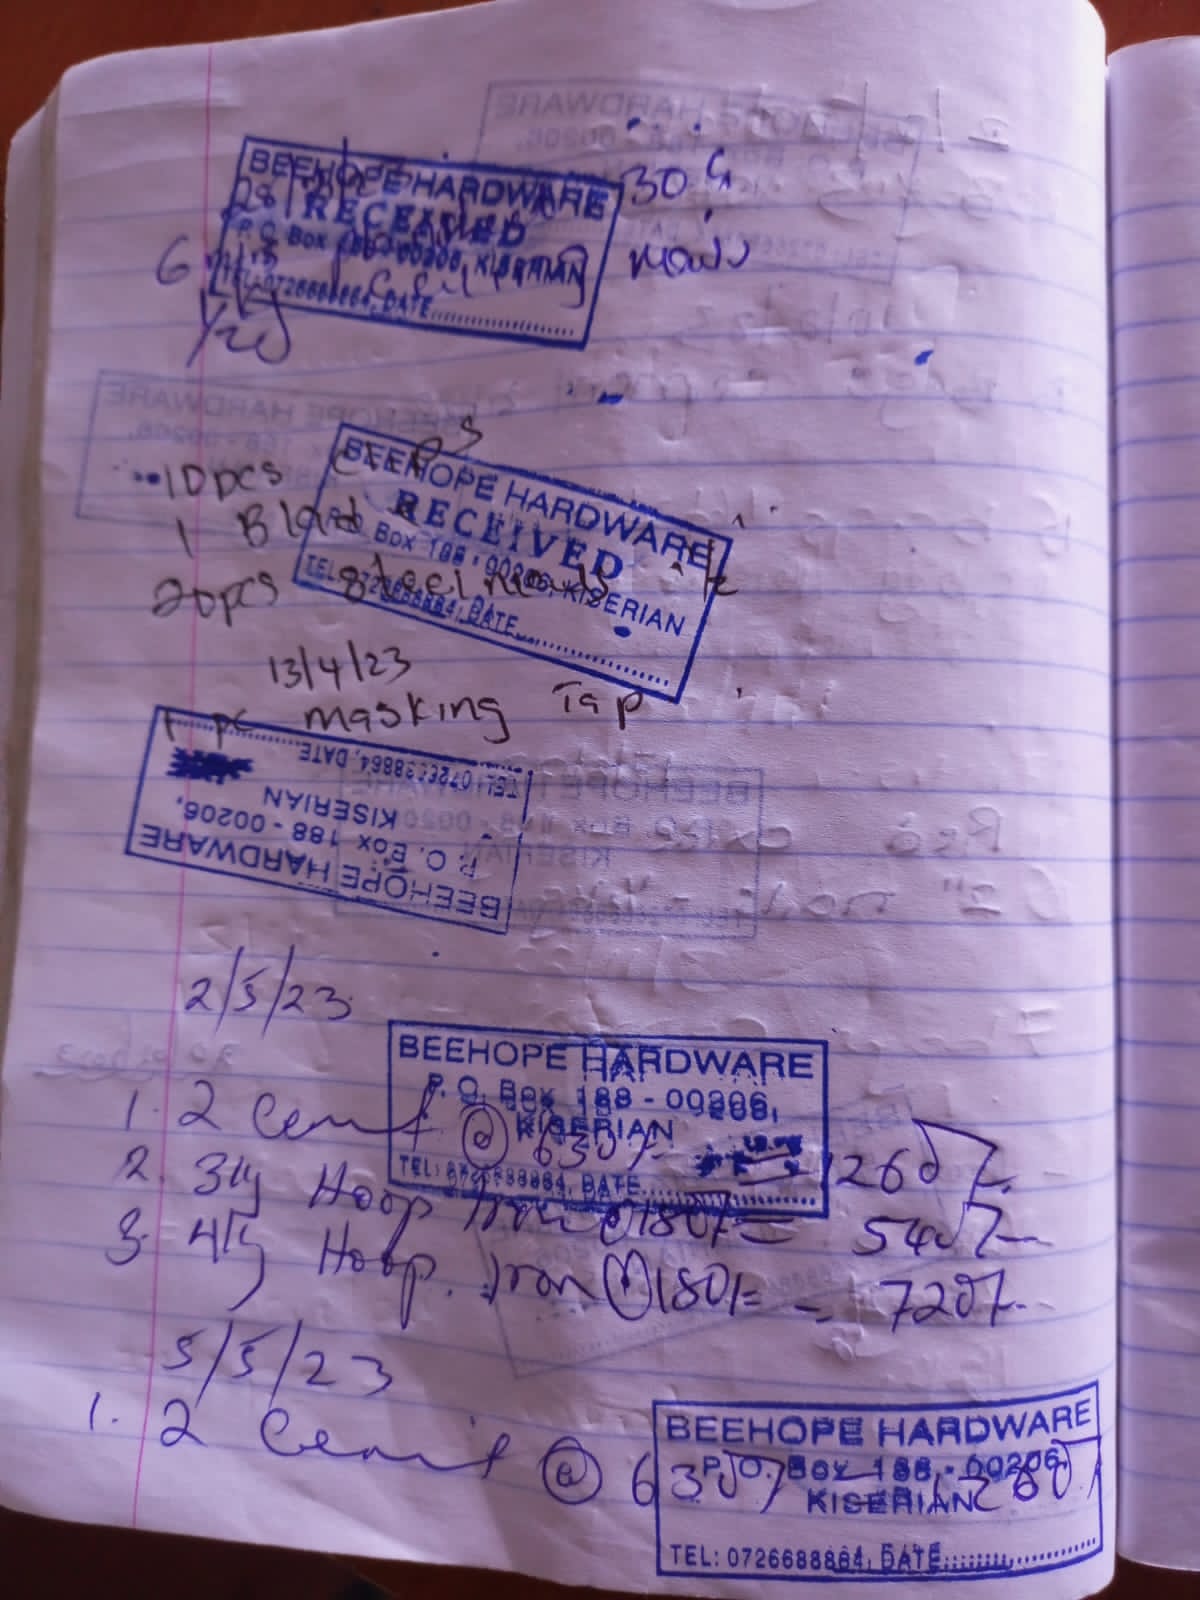 BEEHOPE HARDWARE 30 G
RECEIVED
P. O. Box 188 - 00206, KISERIAN
6 nails
TEL: 0726688864, DATE
1/2kg
10pcs clips
BEEHOPE HARDWARE
RECEIVED
1 Blad
P. O. Box 188 - 00206, KISERIAN
20pcs steel nails
TEL: 0726688864, DATE
13/4/23
1 pc masking Tap
BEEHOPE HARDWARE
P. O. Box 188 - 00206,
KISERIAN
TEL: 0726688864, DATE
2/5/23
BEEHOPE HARDWARE
P. O. Box 188 - 00206,
KISERIAN
TEL: 0726688864, DATE
1. 2 Cemt @ 630/= 1260/=
2. 3kg Hoop Iron @180/= = 540/=
3. 4kg Hoop Iron @180/= = 720/=
5/5/23
1. 2 Cemt @ 630/= 1260/=
BEEHOPE HARDWARE
P. O. Box 188 - 00206
KISERIAN
TEL: 0726688864, DATE